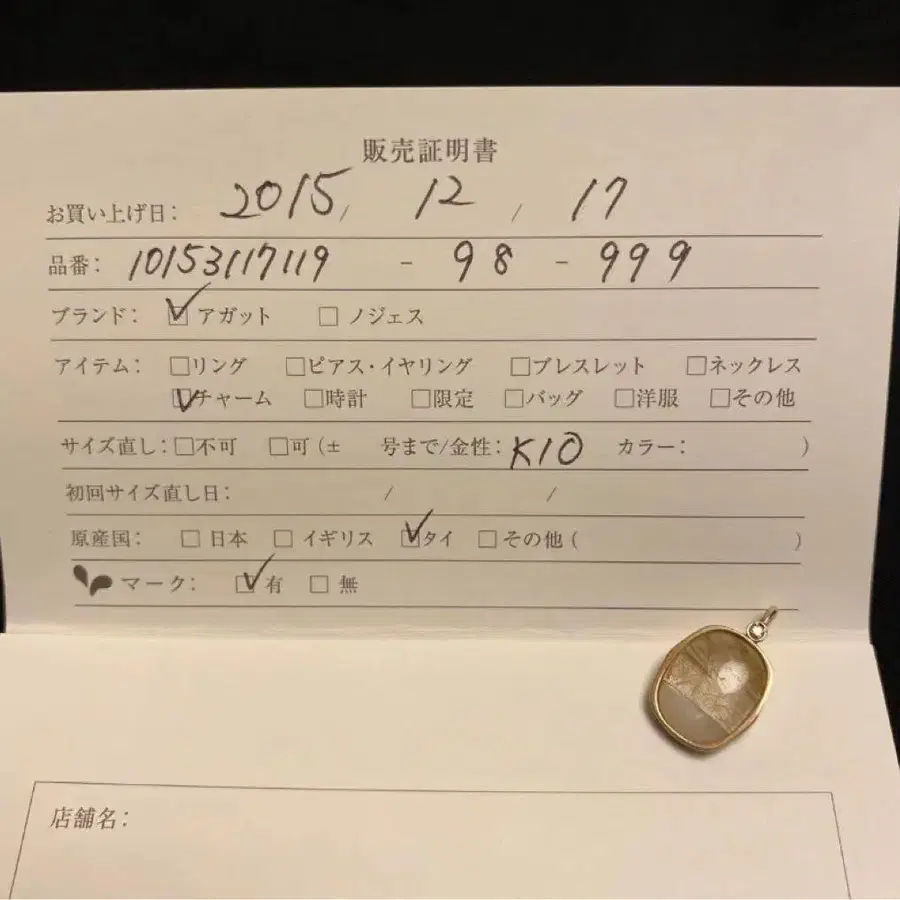 販売証明書
お買い上げ日: 2015 / 12 / 17
品番: 10153117119 - 98 - 999
ブランド: ☑アガット □ノジェス
アイテム: □リング □ピアス・イヤリング □ブレスレット □ネックレス
☑チャーム □時計 □限定 □バッグ □洋服 □その他
サイズ直し: □不可 □可 (± 号まで/金性: K10 カラー: )
初回サイズ直し日: / /
原産国: □日本 □イギリス ☑タイ □その他 ( )
マーク: ☑有 □無
店舗名: